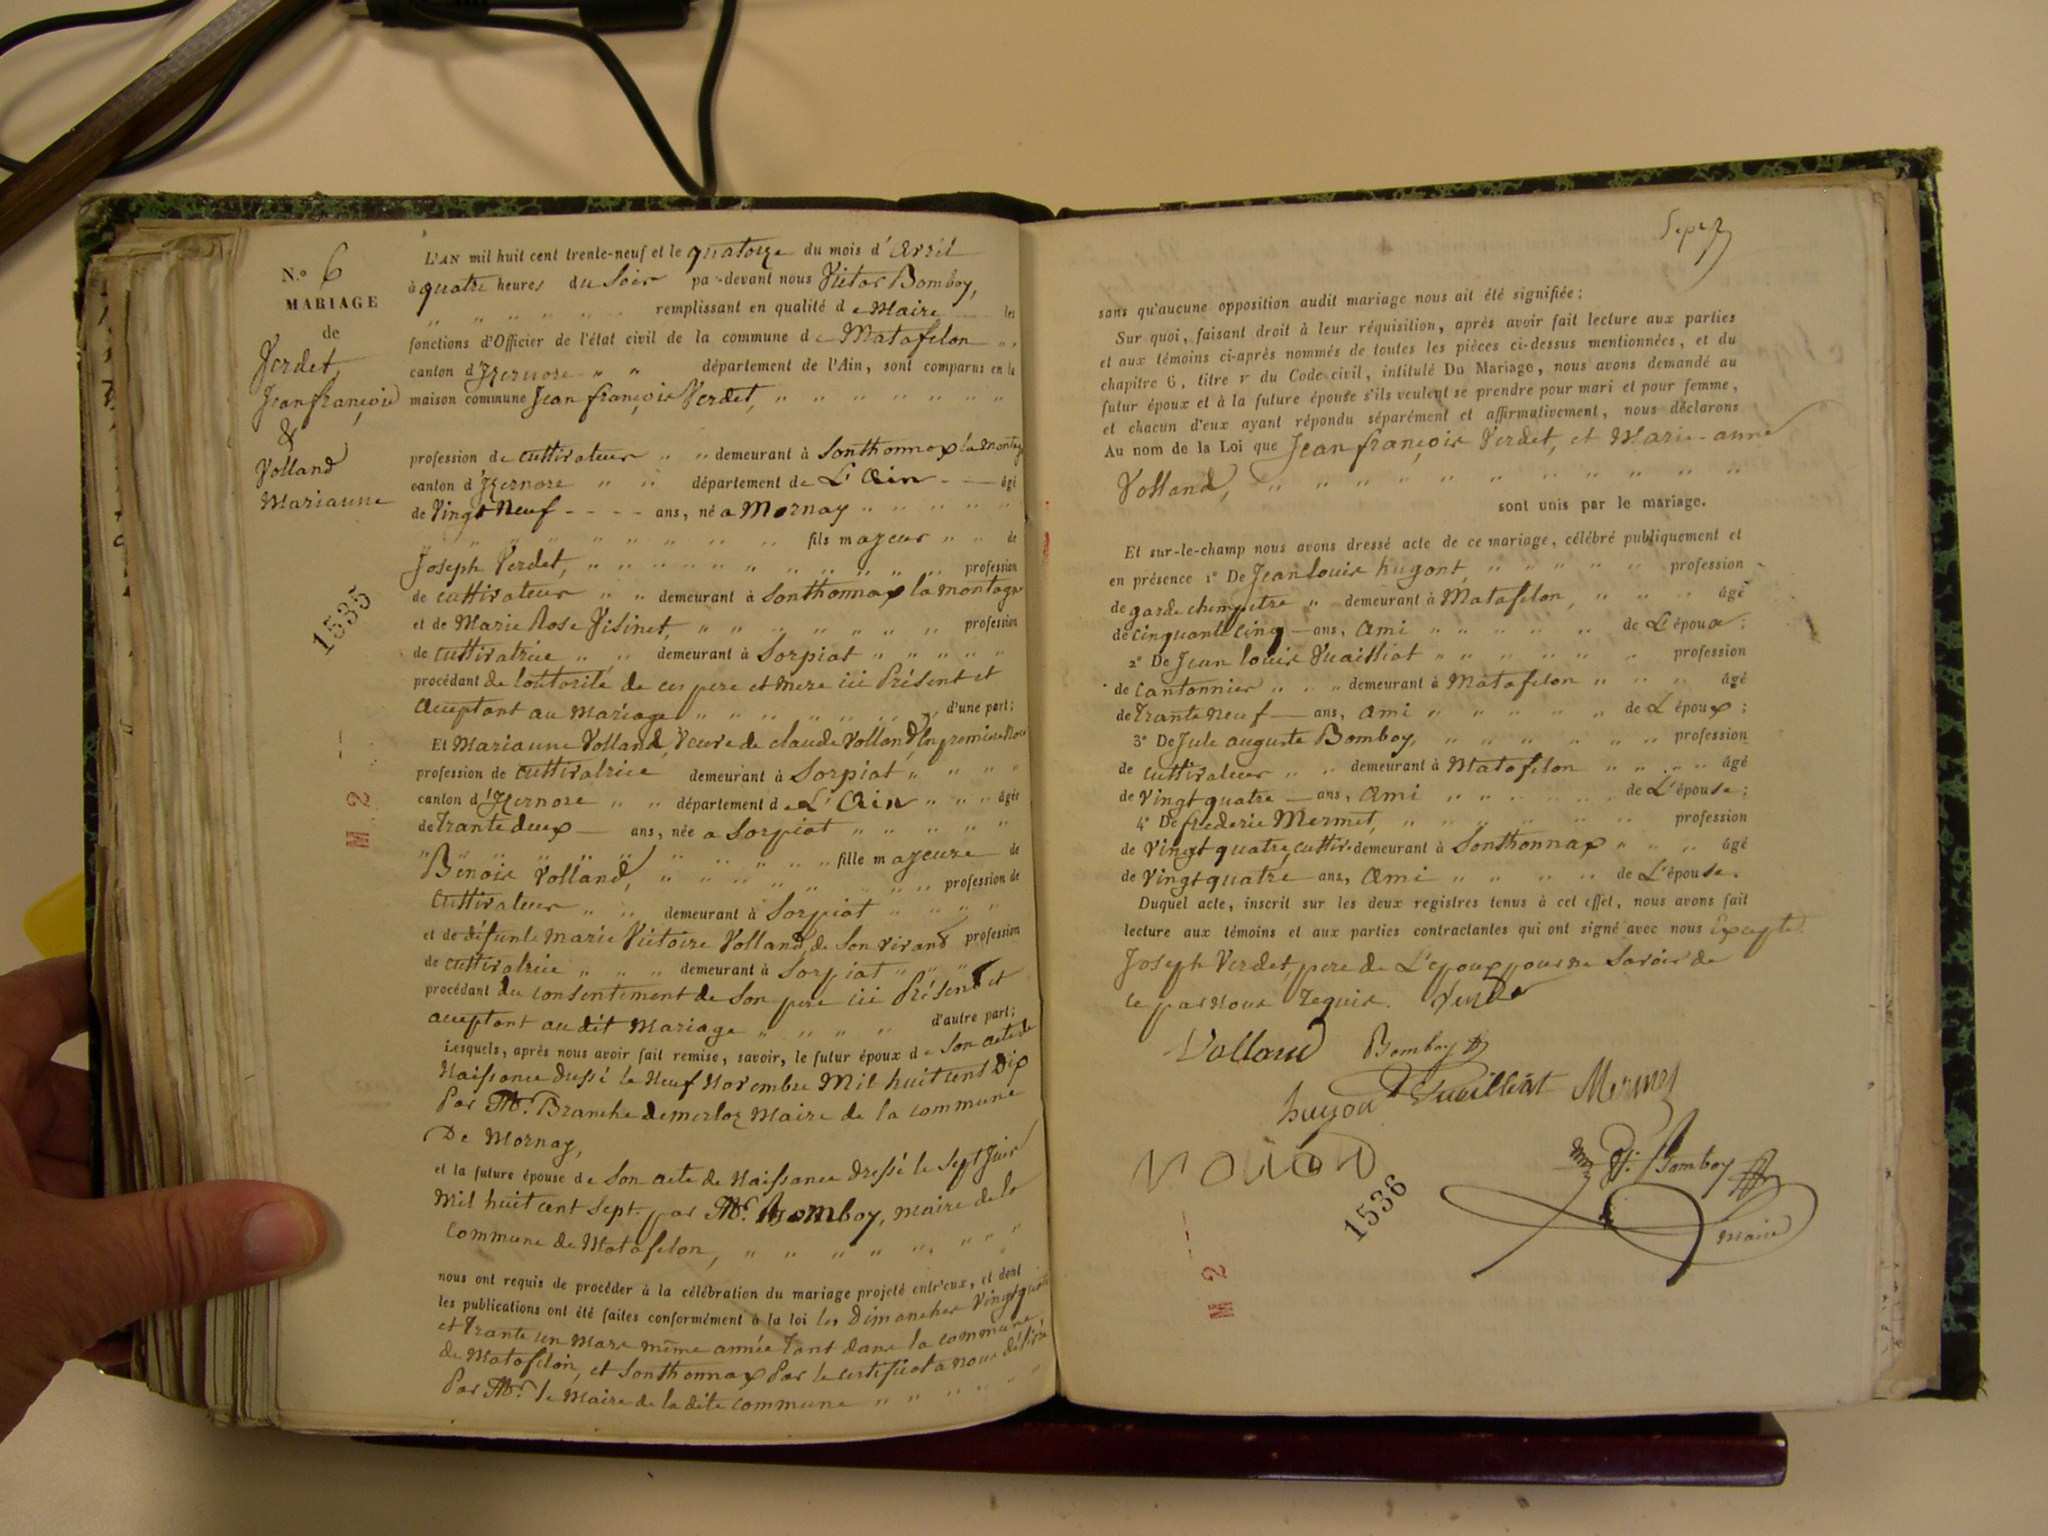 N.o 6
MARIAGE
de
Verdet,
Jean françois
&
Volland
Marianne
1535
M 2
L'AN mil huit cent trente-neuf et le quatorze du mois d'avril
à quatre heures du Soir par-devant nous Victor Bomboy,
" " " " " " remplissant en qualité de Maire les
fonctions d'Officier de l'état civil de la commune de Matafelon " "
canton d'Izernore " " département de l'Ain, sont comparus en la
maison commune Jean françois Verdet, " " " " " " "
profession de cultivateur " " demeurant à Sonthonnax la montag
canton d'Izernore " " département de L'Ain - — âgé
de Vingt Neuf - - - - ans, né a Mornay " " " " "
" " " " " " " " " fils majeur " " de
Joseph Verdet, " " " " " " " " " " " profession
de cultivateur " " demeurant à Sonthonnax la montagne
et de Marie Rose Visinet, " " " " " " " profession
de cultivatrice " " demeurant à Sorpiat " " " " "
procédant de l'outorité de ces pere et mere ici Présent et
acceptant au Mariage " " " " " " " d'une part;
Et Marianne Volland, Veuve de claude Volland, en premiere Noce
profession de cultivatrice demeurant à Sorpiat " " " "
canton d'Izernore " " département de L'Ain " " " âgée
de Trante deux — ans, née a Sorpiat " " " " "
" " " " " " " " " " fille majeure de
Benoir Volland, " " " " " " " " profession de
Cultivateur " " demeurant à Sorpiat " " " "
et de défunte Marie Victoire Volland, de Son vivant profession
de cultivatrice " " " demeurant à Sorpiat " " "
procédant du consentement de Son pere ici Présent et
acceptant au dit Mariage " " " " " d'autre part;
Lesquels, après nous avoir fait remise, savoir, le futur époux de Son acte de
Naissance dressé le Neuf Novembre Mil huit cent Dix
Par Mr. Branche demerloz Maire de la commune
De Mornay,
et la future épouse de Son acte de Naissance dressé le Sept Juin
Mil huit cent Sept par Mr. Bomboy, maire de la
Commune de Matafelon, " " " " " " " "
nous ont requis de procéder à la célébration du mariage projeté entr'eux, et dont
les publications ont été faites conformément à la loi les Dimanches Vingt quatre
et Trante un Mars même année Tant dans la commune
de Matafelon, et Sonthonnax Par le certificat a nous délivré
Par Mr. le Maire de la dite commune " " " " " "
sans qu'aucune opposition audit mariage nous ait été signifiée;
Sur quoi, faisant droit à leur réquisition, après avoir fait lecture aux parties
et aux témoins ci-après nommés de toutes les pièces ci-dessus mentionnées, et du
chapitre 6, titre v du Code civil, intitulé Du Mariage, nous avons demandé au
futur époux et à la future épouse s'ils veulent se prendre pour mari et pour femme,
et chacun d'eux ayant répondu séparément et affirmativement, nous déclarons
Au nom de la Loi que Jean françois Verdet, et Marie-anne
Volland, " " " " " " " " " " "
sont unis par le mariage.
Et sur-le-champ nous avons dressé acte de ce mariage, célébré publiquement et
en présence 1° De Jean louis hugont, " " " " " profession
de garde champetre " demeurant à Matafelon, " " " âgé
de cinquante cinq — ans, Ami " " " " " de L'époux;
2° De Jean louis Vuailliat " " " " " " " profession
de Cantonnier " " " demeurant à Matafelon " " " âgé
de Trante Neuf — ans, Ami " " " " " de L'époux;
3° De Jule auguste Bomboy, " " " " " " profession
de Cultivateur " " demeurant à Matafelon " " " " âgé
de Vingt quatre — ans, Ami " " " " " de L'épouse;
4° De frederic Mermet, " " " " " " profession
de Vingt quatre, cultiv. demeurant à Sonthonnax " " " âgé
de Vingt quatre ans, Ami " " " " de L'épouse.
Duquel acte, inscrit sur les deux registres tenus à cet effet, nous avons fait
lecture aux témoins et aux parties contractantes qui ont signé avec nous Excepté
Joseph Verdet, pere de L'epoux pour ne Savoir de
ce par Nous requis. Verde
Volland Bomboy
hugon Vuailliat Mermet
V. Bomboy
maire
1536
M 2